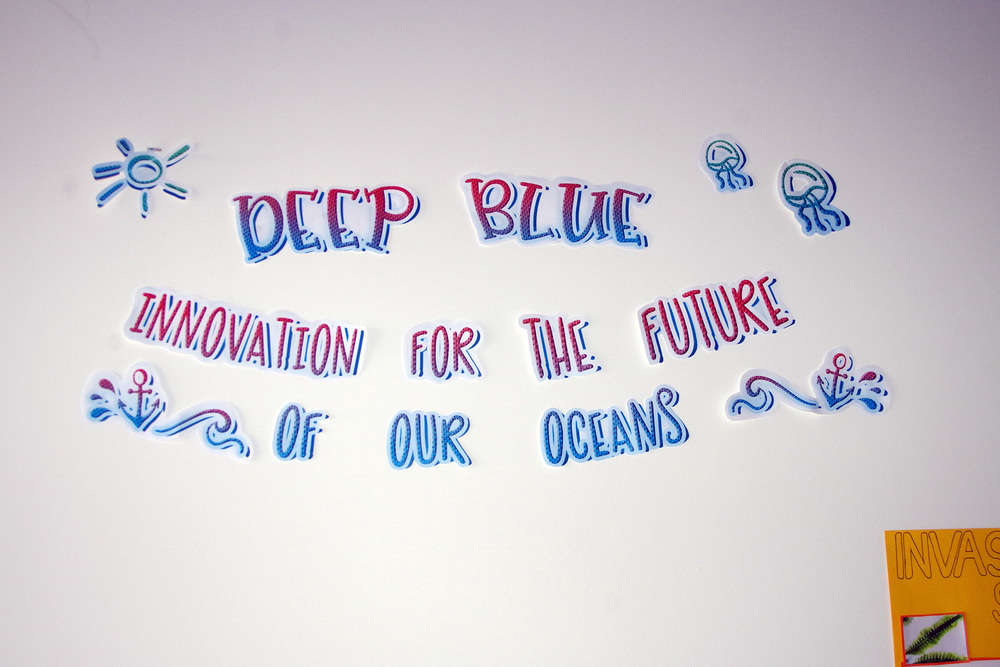 DEEP BLUE
INNOVATION FOR THE FUTURE
OF OUR OCEANS
INVAS
S